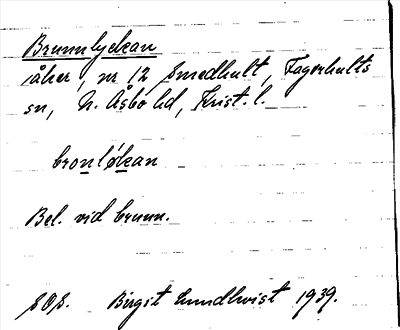 Brunnlyckan
åker, nr 12 Smedhult, Fagerhults
sn, N. Åsbo hd, Krist. l.
bronløkan
Bel. vid brunn.
SOS. Birgit Lundkvist 1939.